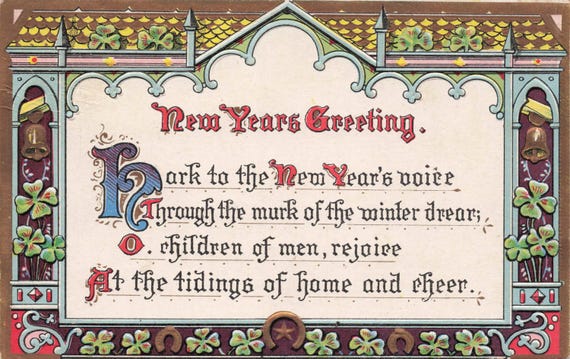 New Years Greeting.
Hark to the New Year's voice
Through the murk of the winter drear;
O. children of men, rejoice
At the tidings of home and cheer..